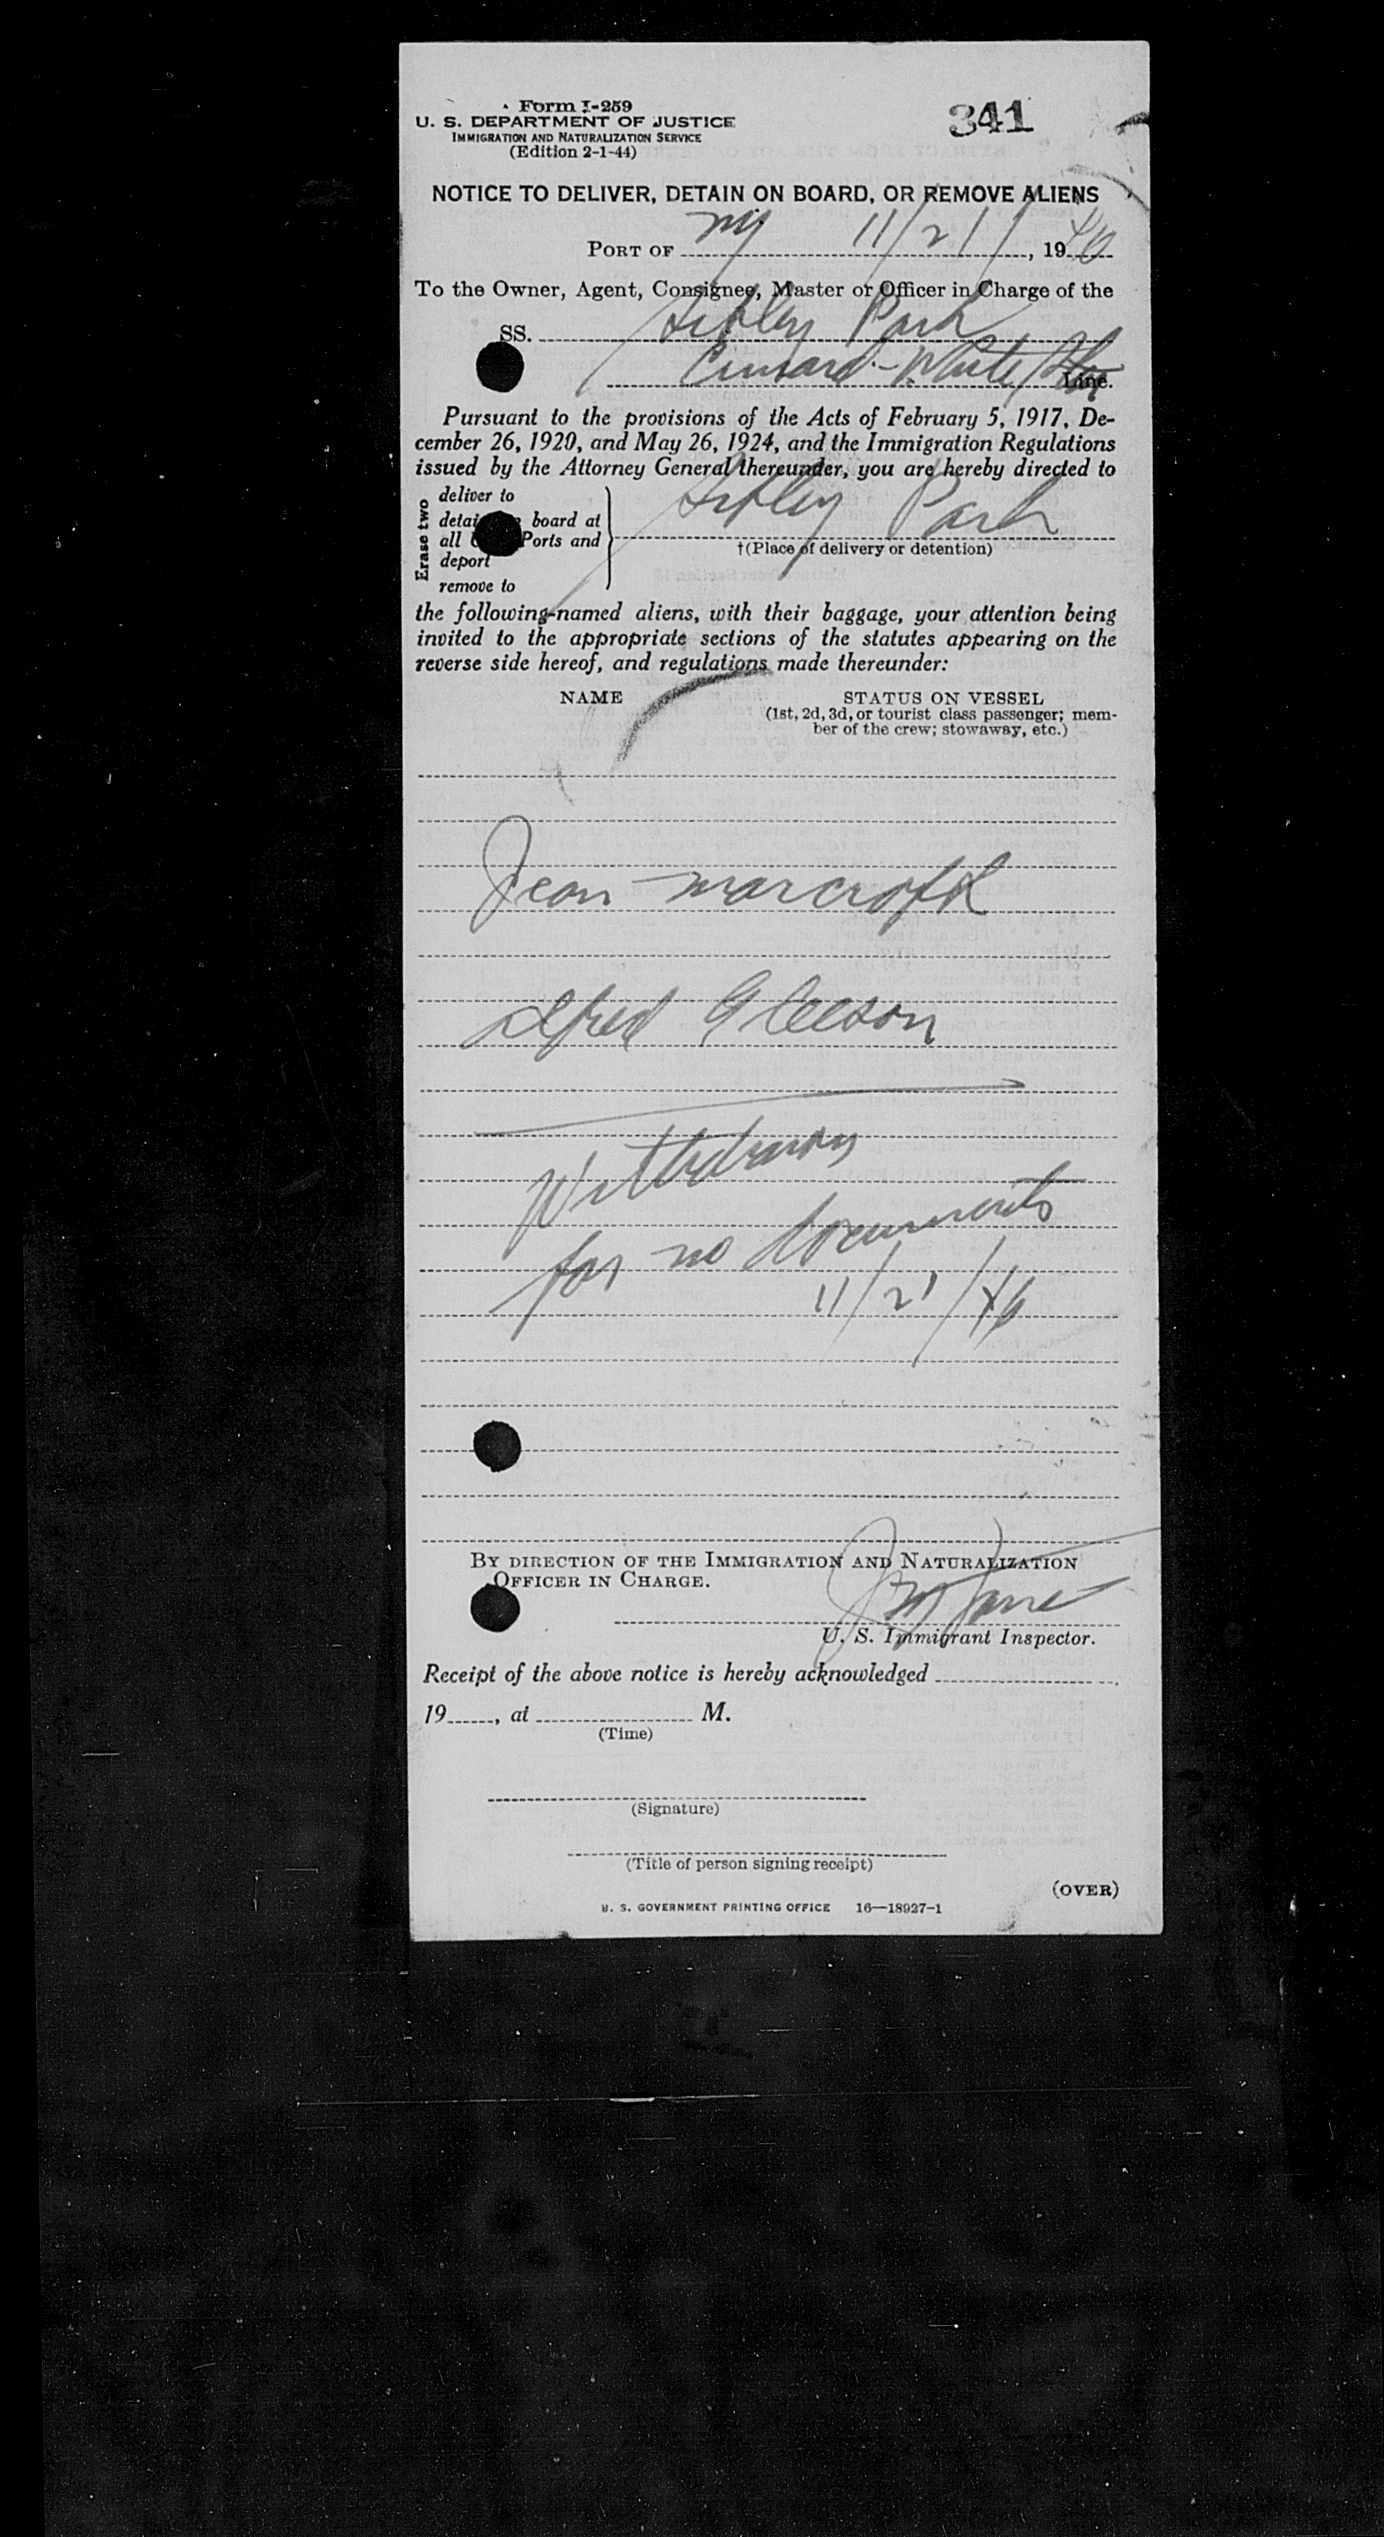 Form I-259
341
U. S. DEPARTMENT OF JUSTICE
IMMIGRATION AND NATURALIZATION SERVICE
(Edition 2-1-44)
NOTICE TO DELIVER, DETAIN ON BOARD, OR REMOVE ALIENS
PORT OF NY 11/21/, 1946
To the Owner, Agent, Consignee, Master or Officer in Charge of the
SS. Sibley Park
Cunard-White Star Line.
Pursuant to the provisions of the Acts of February 5, 1917, De-
cember 26, 1920, and May 26, 1924, and the Immigration Regulations
issued by the Attorney General thereunder, you are hereby directed to
Erase two
deliver to
board at
all Ports and
deport
remove to
Sibley Park
†(Place of delivery or detention)
the following-named aliens, with their baggage, your attention being
invited to the appropriate sections of the statutes appearing on the
reverse side hereof, and regulations made thereunder:
NAME STATUS ON VESSEL
(1st, 2d, 3d, or tourist class passenger; mem-
ber of the crew; stowaway, etc.)
Jean Marcroft
Alfred Gleeson
Withdrawn
for no documents
11/21/46
BY DIRECTION OF THE IMMIGRATION AND NATURALIZATION
OFFICER IN CHARGE.
U. S. Immigrant Inspector.
Receipt of the above notice is hereby acknowledged
19, at M.
(Time)
(Signature)
(Title of person signing receipt)
(OVER)
U. S. GOVERNMENT PRINTING OFFICE 16—18927-1